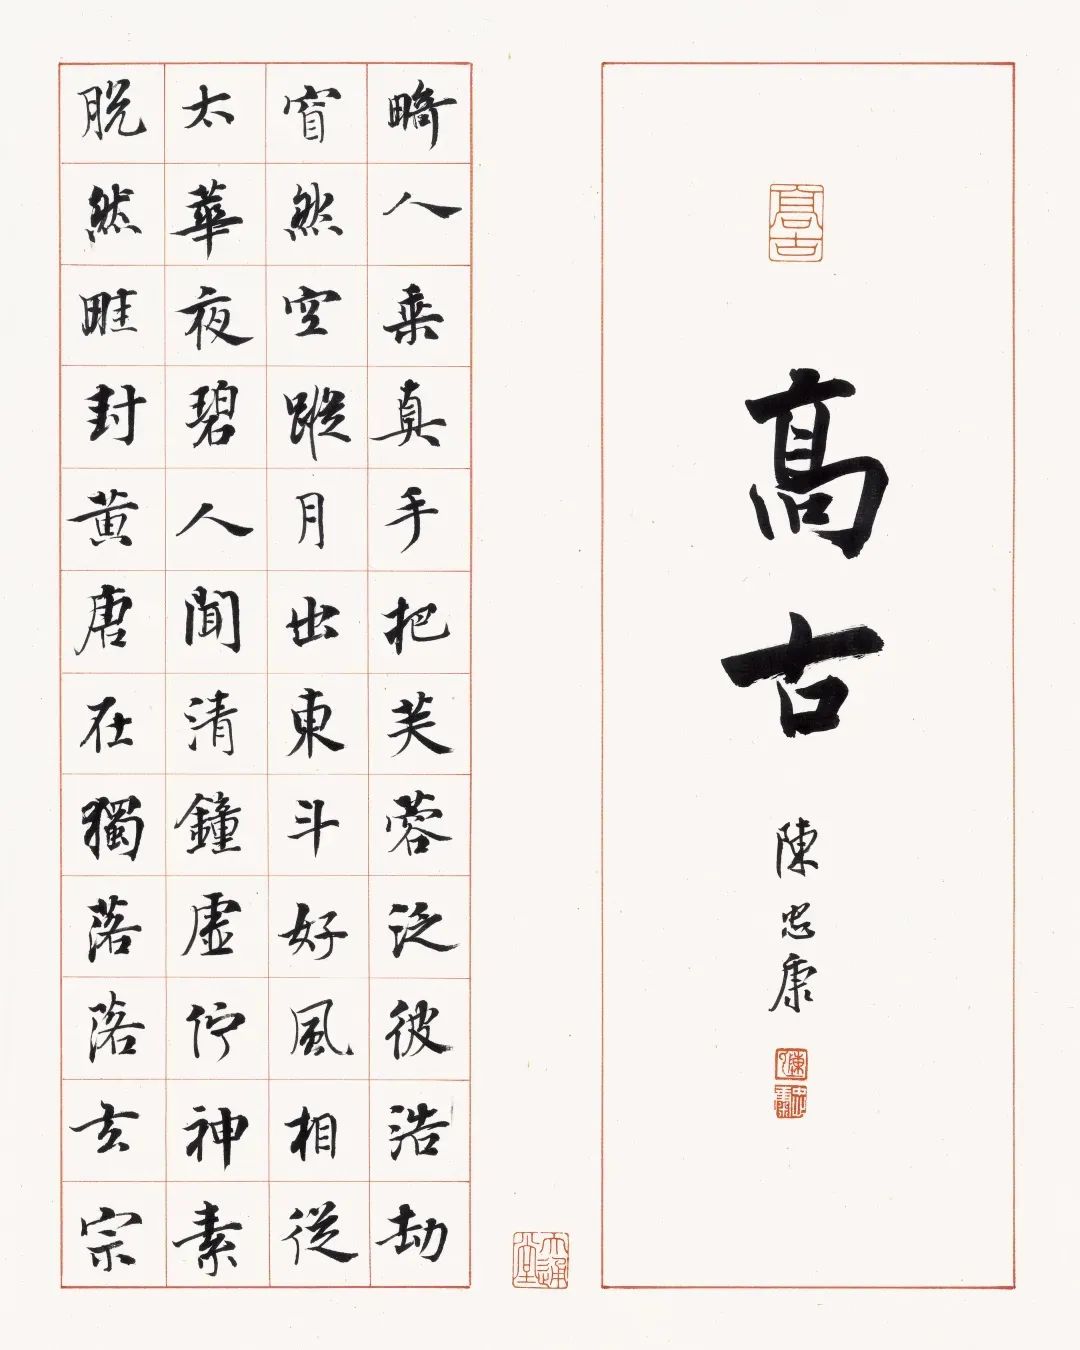 高古
高古
陳忠康
忠康
畸人乘真手把芙蓉泛彼浩劫
窅然空蹤月出東斗好風相從
太華夜碧人聞清鐘虚佇神素
脱然畦封黄唐在獨落落玄宗